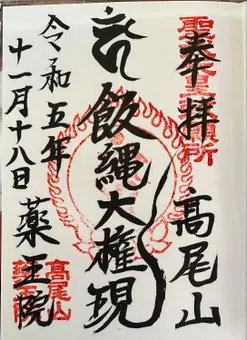 奉拝 高尾山
飯縄大権現
令和五年
十一月十八日 薬王院
高尾山
薬王院